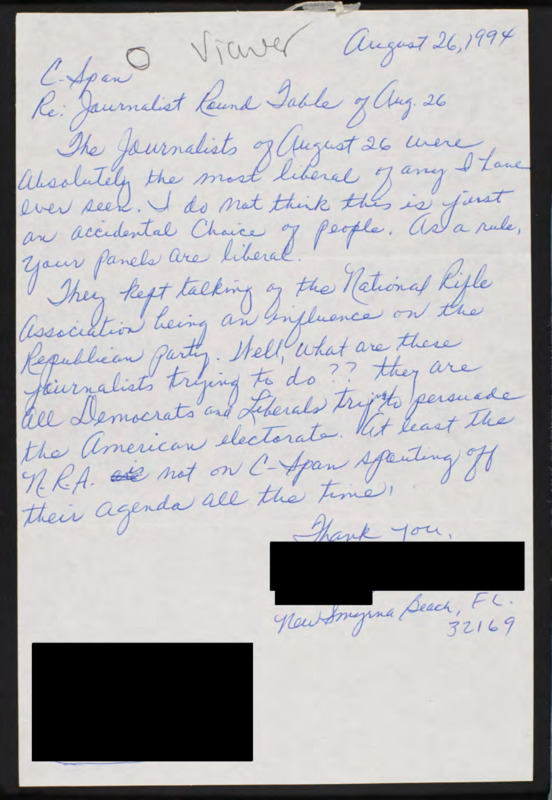 Viewer
August 26, 1994
C-Span
Re: Journalist Round Table of Aug. 26
The Journalists of August 26 were
absolutely the most liberal of any I have
ever seen. I do not think this is just
an accidental Choice of people. As a rule,
your panels are liberal.
They kept talking of the National Rifle
Association being an influence on the
Republican party. Well, what are these
journalists trying to do?? they are
all Democrats and Liberals trying to persuade
the American electorate. At least the
N.R.A. not on C-Span spouting off
their agenda all the time.
Thank you,
New Smyrna Beach, FL.
32169